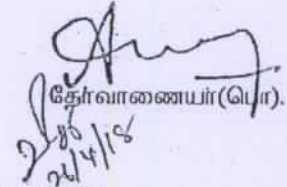 தேர்வாணையர்(பொ).
26/4/18